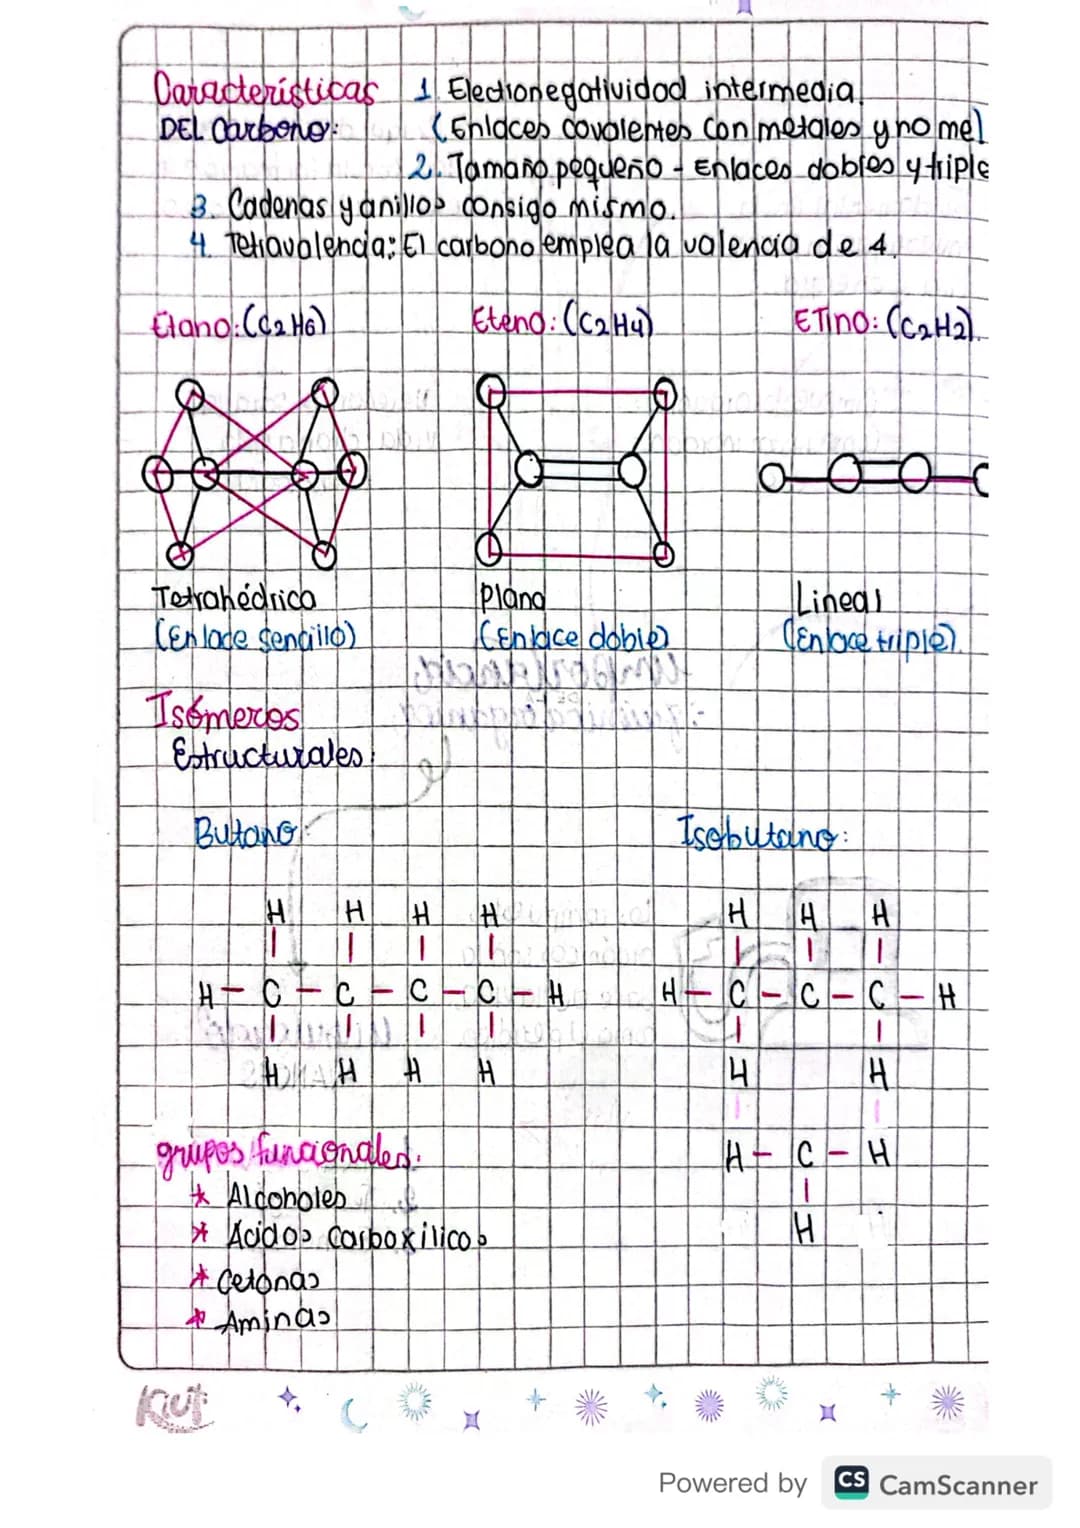 Características 1. Electronegatividad intermedia.
DEL Carbono: (Enlaces covalentes con metales y no mel
2. Tamaño pequeño - Enlaces dobles y triple
3. Cadenas y anillos consigo mismo.
4. Tetravalencia: El carbono emplea la valencia de 4.
Etano: (C2H6) Eteno: (C2H4) ETino: (C2H2).
Tetrahédrica Plana Lineal
(Enlace sencillo) (Enlace doble) (Enlace triple).
Isómeros
Estructurales:
Butano: Isobutano:
H H H H H H H
H - C - C - C - C - H H - C - C - C - H
H H H H H H
grupos funcionales. H - C - H
* Alcoholes
* Ácidos Carboxílicos H
* Cetonas
* Aminas
Kiut
Powered by CS CamScanner